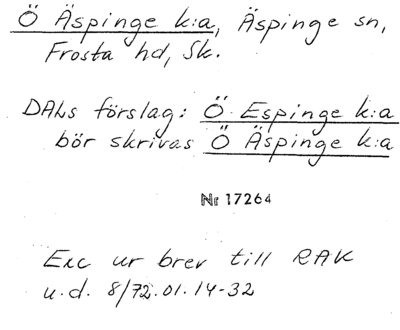 Ö Äspinge k:a, Äspinge sn,
Frosta hd, Sk.
DALs förslag: Ö Espinge k:a
bör skrivas Ö Äspinge k:a
Nr 17264
Exc ur brev till RAK
u.d. 8/72.01.14-32